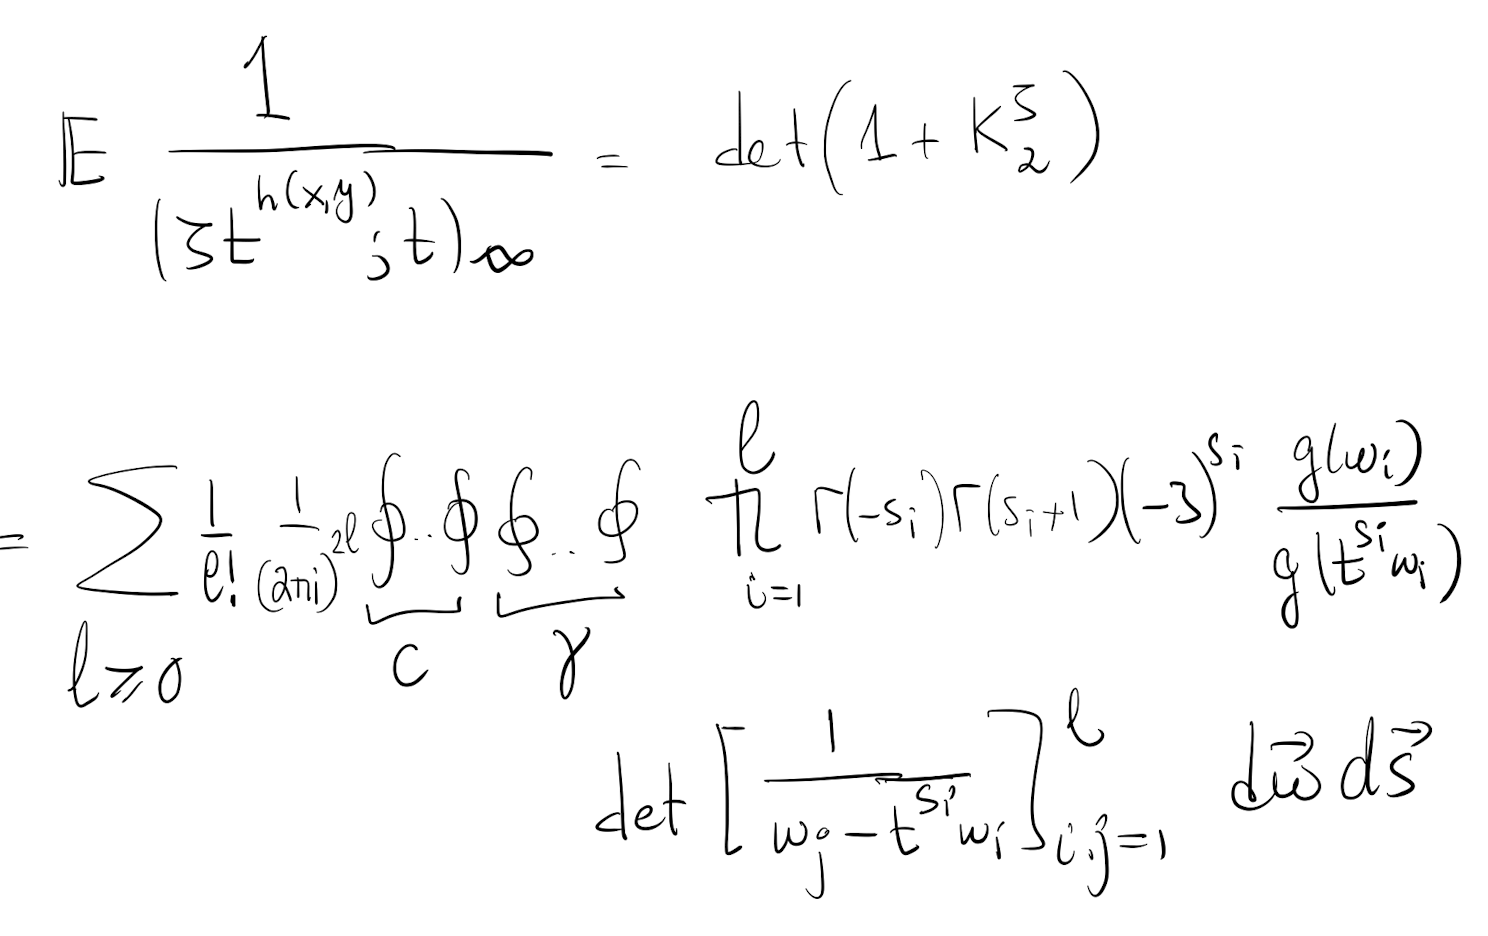 𝔼 1/(ζt^{h(x,y)}; t)_∞ = det(1 + K_2^ζ)
= Σ_{l≥0} 1/l! 1/(2πi)^{2l} ∮..∮_C ∮..∮_γ ∏_{i=1}^{l} Γ(-s_i)Γ(s_i+1)(-ζ)^{s_i} g(w_i)/g(t^{s_i}w_i)
det[1/(w_j - t^{s_i}w_i)]_{i,j=1}^{l} dw⃗ ds⃗